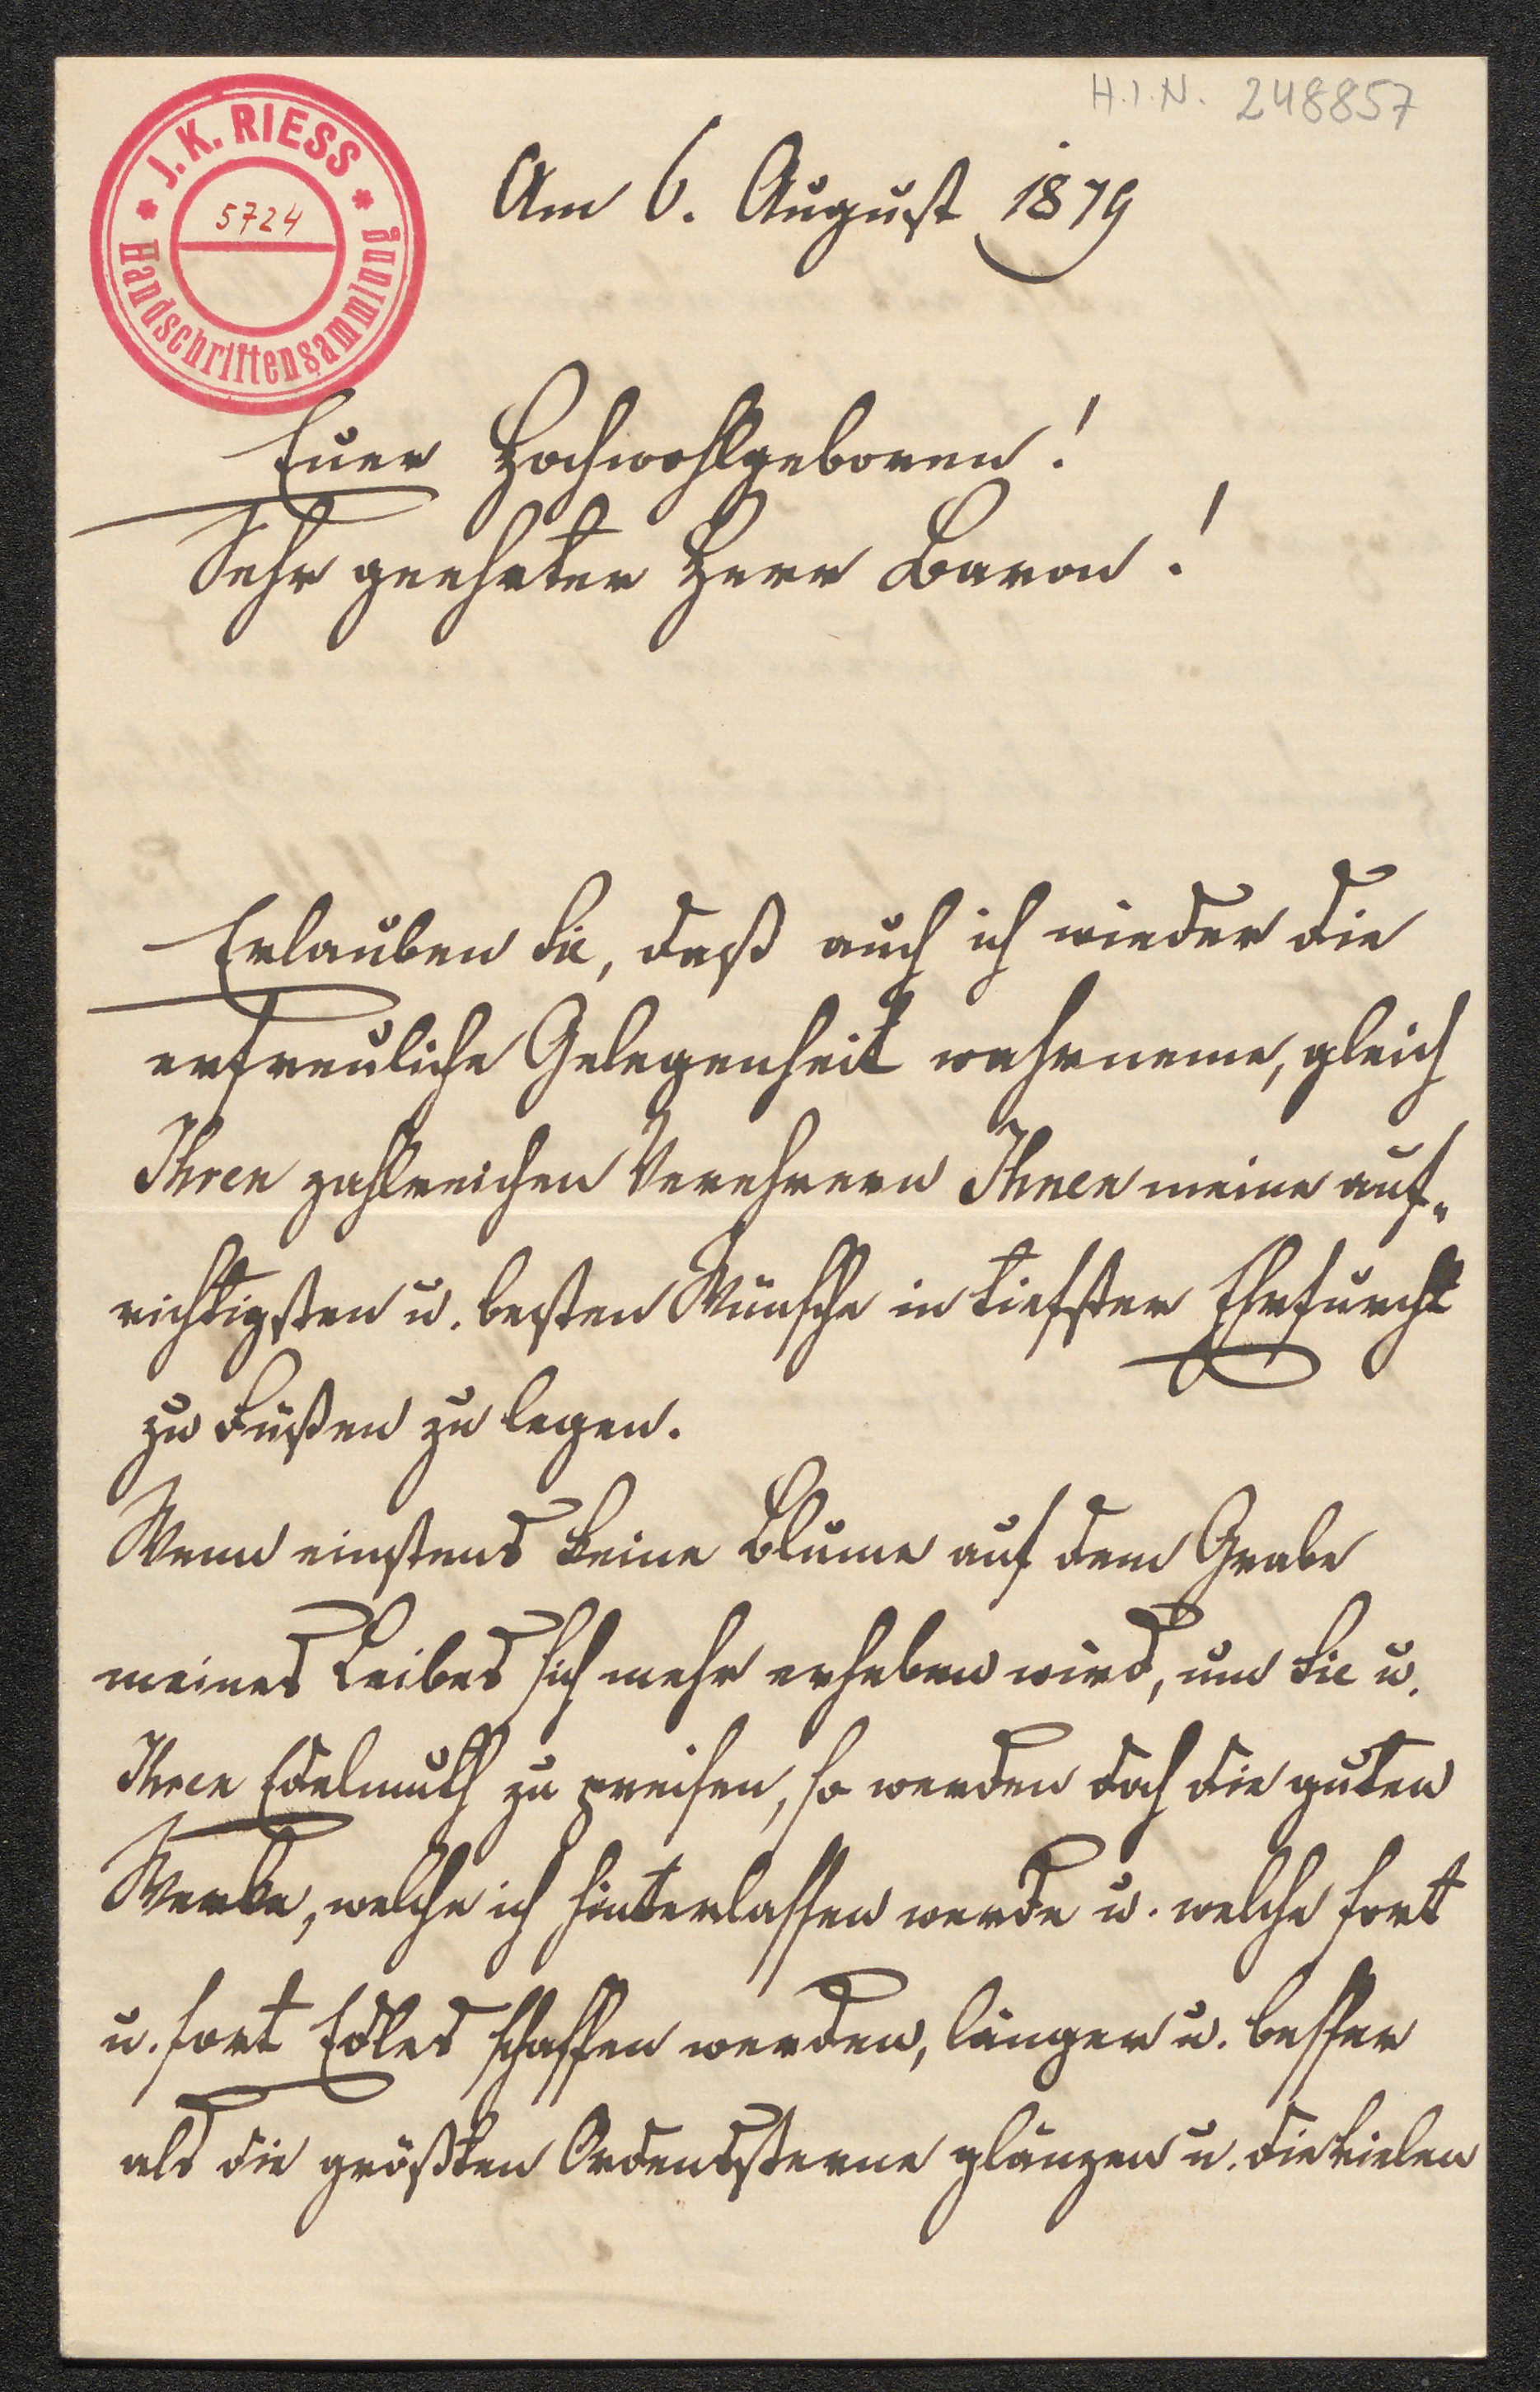 H.I.N. 248857
J. K. RIESS
5724
Handschriftensammlung
Am 6. August 1879
Euer Hochwohlgeboren!
Sehr geehrter Herr Baron!
Erlauben Sie, daß auch ich wieder die
erfreuliche Gelegenheit wahrneme, gleich
Ihren zahlreichen Verehrern Ihnen meine auf-
richtigsten u. besten Wünsche in tiefster Ehrfurcht
zu Füßen zu legen.
Wenn einstens keine Blume auf dem Grabe
meines Leibes sich mehr erheben wird, um Sie u.
Ihren Edelmuth zu preisen, so werden doch die guten
Werke, welche ich hinterlassen werde u. welche fort
u. fort Edles schaffen werden, länger u. besser
als die größten Ordenssterne glänzen u. die vielen